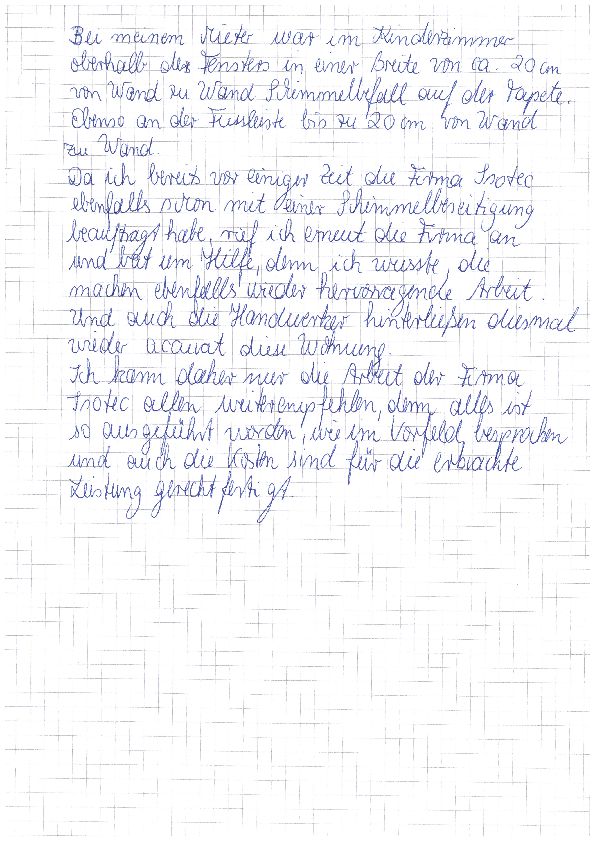 Bei meinem Mieter war im Kinderzimmer
oberhalb des Fensters in einer Breite von ca. 20 cm
von Wand zu Wand Schimmelbefall auf der Tapete.
Ebenso an der Fussleiste bis zu 20 cm von Wand
zu Wand.
Da ich bereits vor einiger Zeit die Firma Isotec
ebenfalls schon mit einer Schimmelbeseitigung
beauftragt habe, rief ich erneut die Firma an
und bat um Hilfe, denn ich wusste, die
machen ebenfalls wieder hervorragende Arbeit.
Und auch die Handwerker hinterließen diesmal
wieder acaurat diese Wohnung.
Ich kann daher nur die Arbeit der Firma
Isotec allen weiterempfehlen, denn alles ist
so ausgeführt worden, wie im Vorfeld besprochen
und auch die Kosten sind für die erbrachte
Leistung gerechtfertigt.